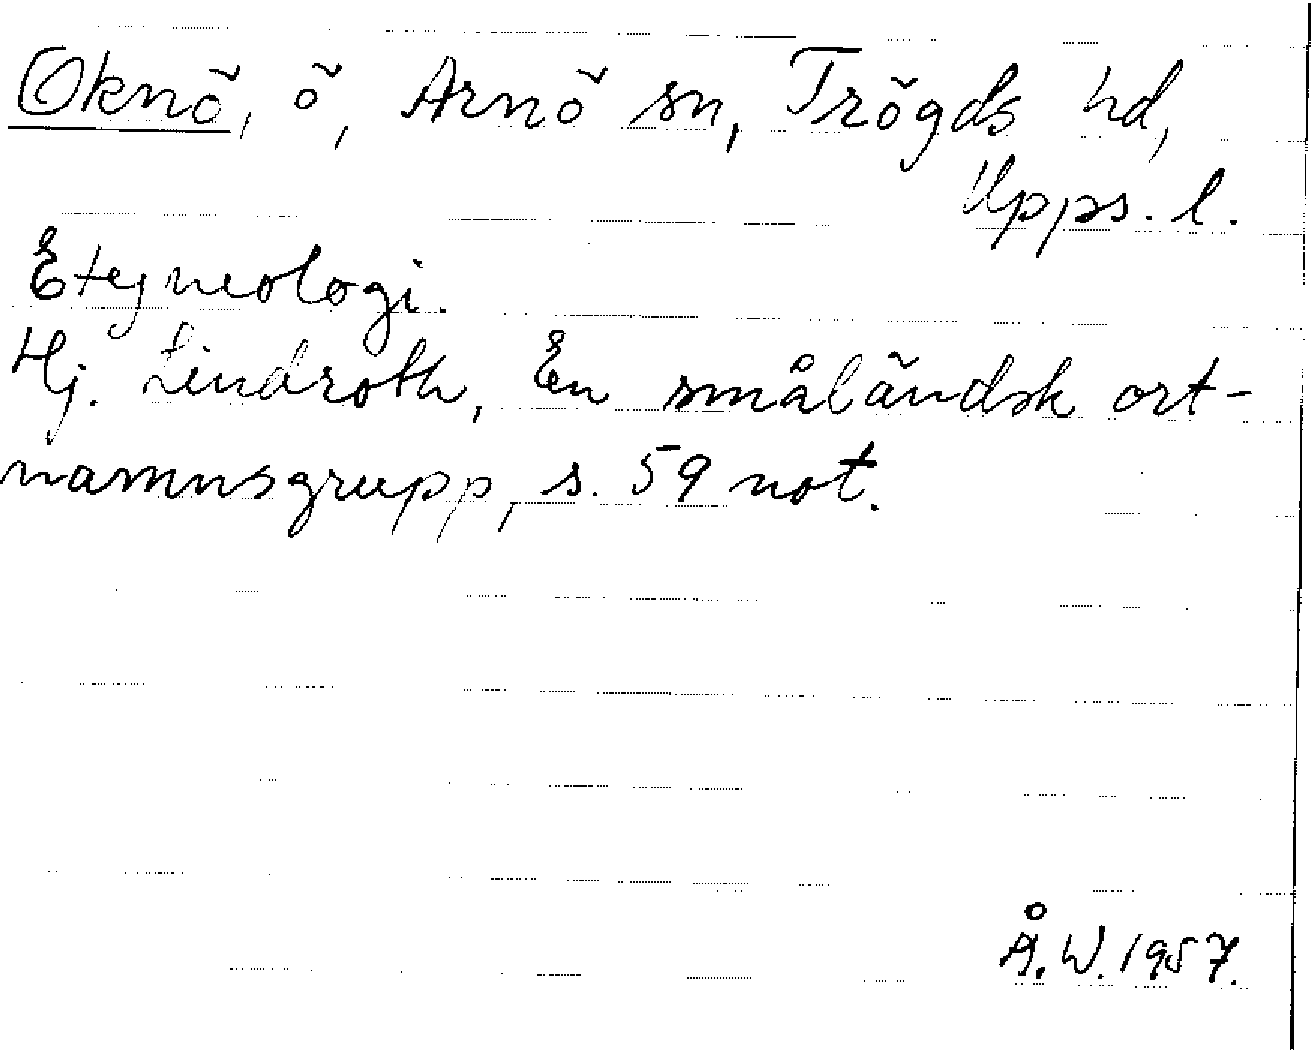 Oknö, ö, Arnö sn, Trögds hd,
Upps. l.
Etymologi.
Hj. Lindroth, En småländsk ort-
namnsgrupp, s. 59 not.
Å. W. 1957.